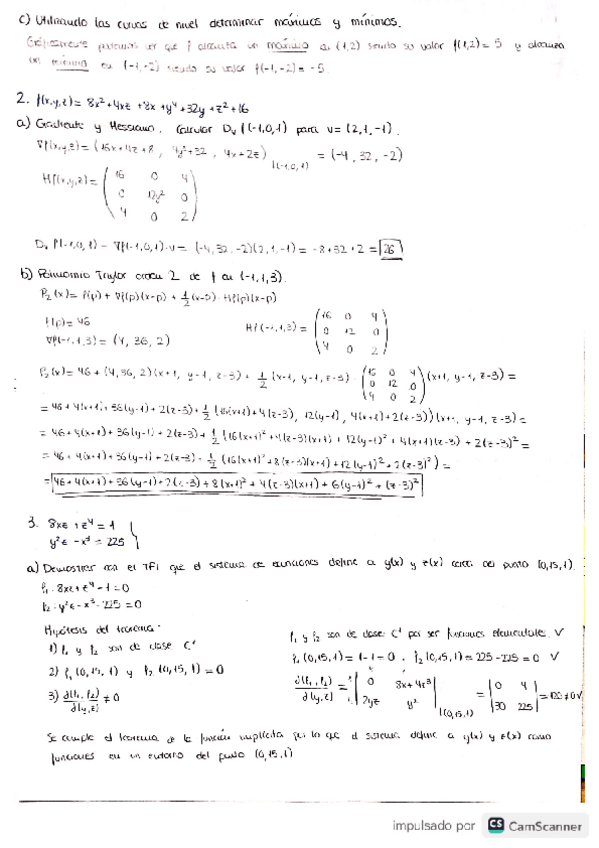 c) Utilizando las curvas de nivel determinar máximos y mínimos.
Gráficamente podemos ver que f alcanza un máximo en (1,2) siendo su valor f(1,2) = 5 y alcanza
un mínimo en (-1,-2) siendo su valor f(-1,-2) = -5.
2. f(x,y,z) = 8x² + 4xz + 8x + y⁴ + 32y + z² + 16
a) Gradiente y Hessiano. Calcular Dᵥ f(-1,0,1) para v = (2,1,-1).
∇f(x,y,z) = (16x + 4z + 8, 4y³ + 32, 4x + 2z)|(-1,0,1) = (-4, 32, -2)
Hf(x,y,z) = ( 16 0 4
0 12y² 0
4 0 2 )
Dᵥ f(-1,0,1) = ∇f(-1,0,1)·v = (-4,32,-2)(2,1,-1) = -8 + 32 + 2 = 26
b) Polinomio Taylor orden 2 de f en (-1,1,3).
P₂(x) = f(p) + ∇f(p)(x-p) + 1/2 (x-p)·Hf(p)(x-p)
f(p) = 46
∇f(-1,1,3) = (4, 36, 2)
Hf(-1,1,3) = ( 16 0 4
0 12 0
4 0 2 )
P₂(x) = 46 + (4,36,2)(x+1, y-1, z-3) + 1/2 (x+1, y-1, z-3) · ( 16 0 4
0 12 0
4 0 2 ) (x+1, y-1, z-3) =
= 46 + 4(x+1) + 36(y-1) + 2(z-3) + 1/2 (16(x+1) + 4(z-3), 12(y-1), 4(x+1) + 2(z-3))(x+1, y-1, z-3) =
= 46 + 4(x+1) + 36(y-1) + 2(z-3) + 1/2 (16(x+1)² + 4(z-3)(x+1) + 12(y-1)² + 4(x+1)(z-3) + 2(z-3)² =
= 46 + 4(x+1) + 36(y-1) + 2(z-3) + 1/2 (16(x+1)² + 8(z-3)(x+1) + 12(y-1)² + 2(z-3)²) =
= 46 + 4(x+1) + 36(y-1) + 2(z-3) + 8(x+1)² + 4(z-3)(x+1) + 6(y-1)² + (z-3)²
3. 8xz + z⁴ = 1
y²z - x³ = 225
a) Demostrar con el TFI que el sistema de ecuaciones define a y(x) y z(x) cerca del punto (0,15,1).
f₁ = 8xz + z⁴ - 1 = 0
f₂ = y²z - x³ - 225 = 0
Hipótesis del teorema:
1) f₁ y f₂ son de clase C¹
f₁ y f₂ son de clase C¹ por ser funciones elementales. V
2) f₁(0,15,1) y f₂(0,15,1) = 0
f₁(0,15,1) = 1 - 1 = 0. f₂(0,15,1) = 225 - 225 = 0 V
3) ∂(f₁,f₂)/∂(y,z) ≠ 0
∂(f₁,f₂)/∂(y,z) = | 0 8x+4z³
2yz y² |(0,15,1) = | 0 4
30 225 | = 120 ≠ 0 V
Se cumple el teorema de la función implícita por lo que el sistema define a y(x) y z(x) como
funciones en un entorno del punto (0,15,1)
impulsado por CS CamScanner